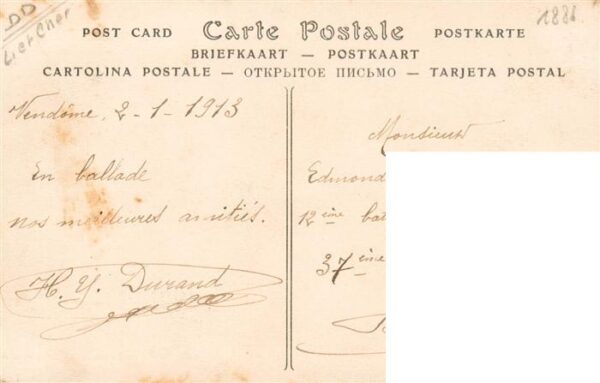 DD
Loir Cher
1886
POST CARD Carte Postale POSTKARTE
BRIEFKAART — POSTKAART
CARTOLINA POSTALE — ОТКРЫТОЕ ПИСЬМО — TARJETA POSTAL
Vendôme, 2-1-1913
En ballade
nos meilleures amitiés.
H. Y. Durand
Monsieur
Edmond
12 ème
37 ème